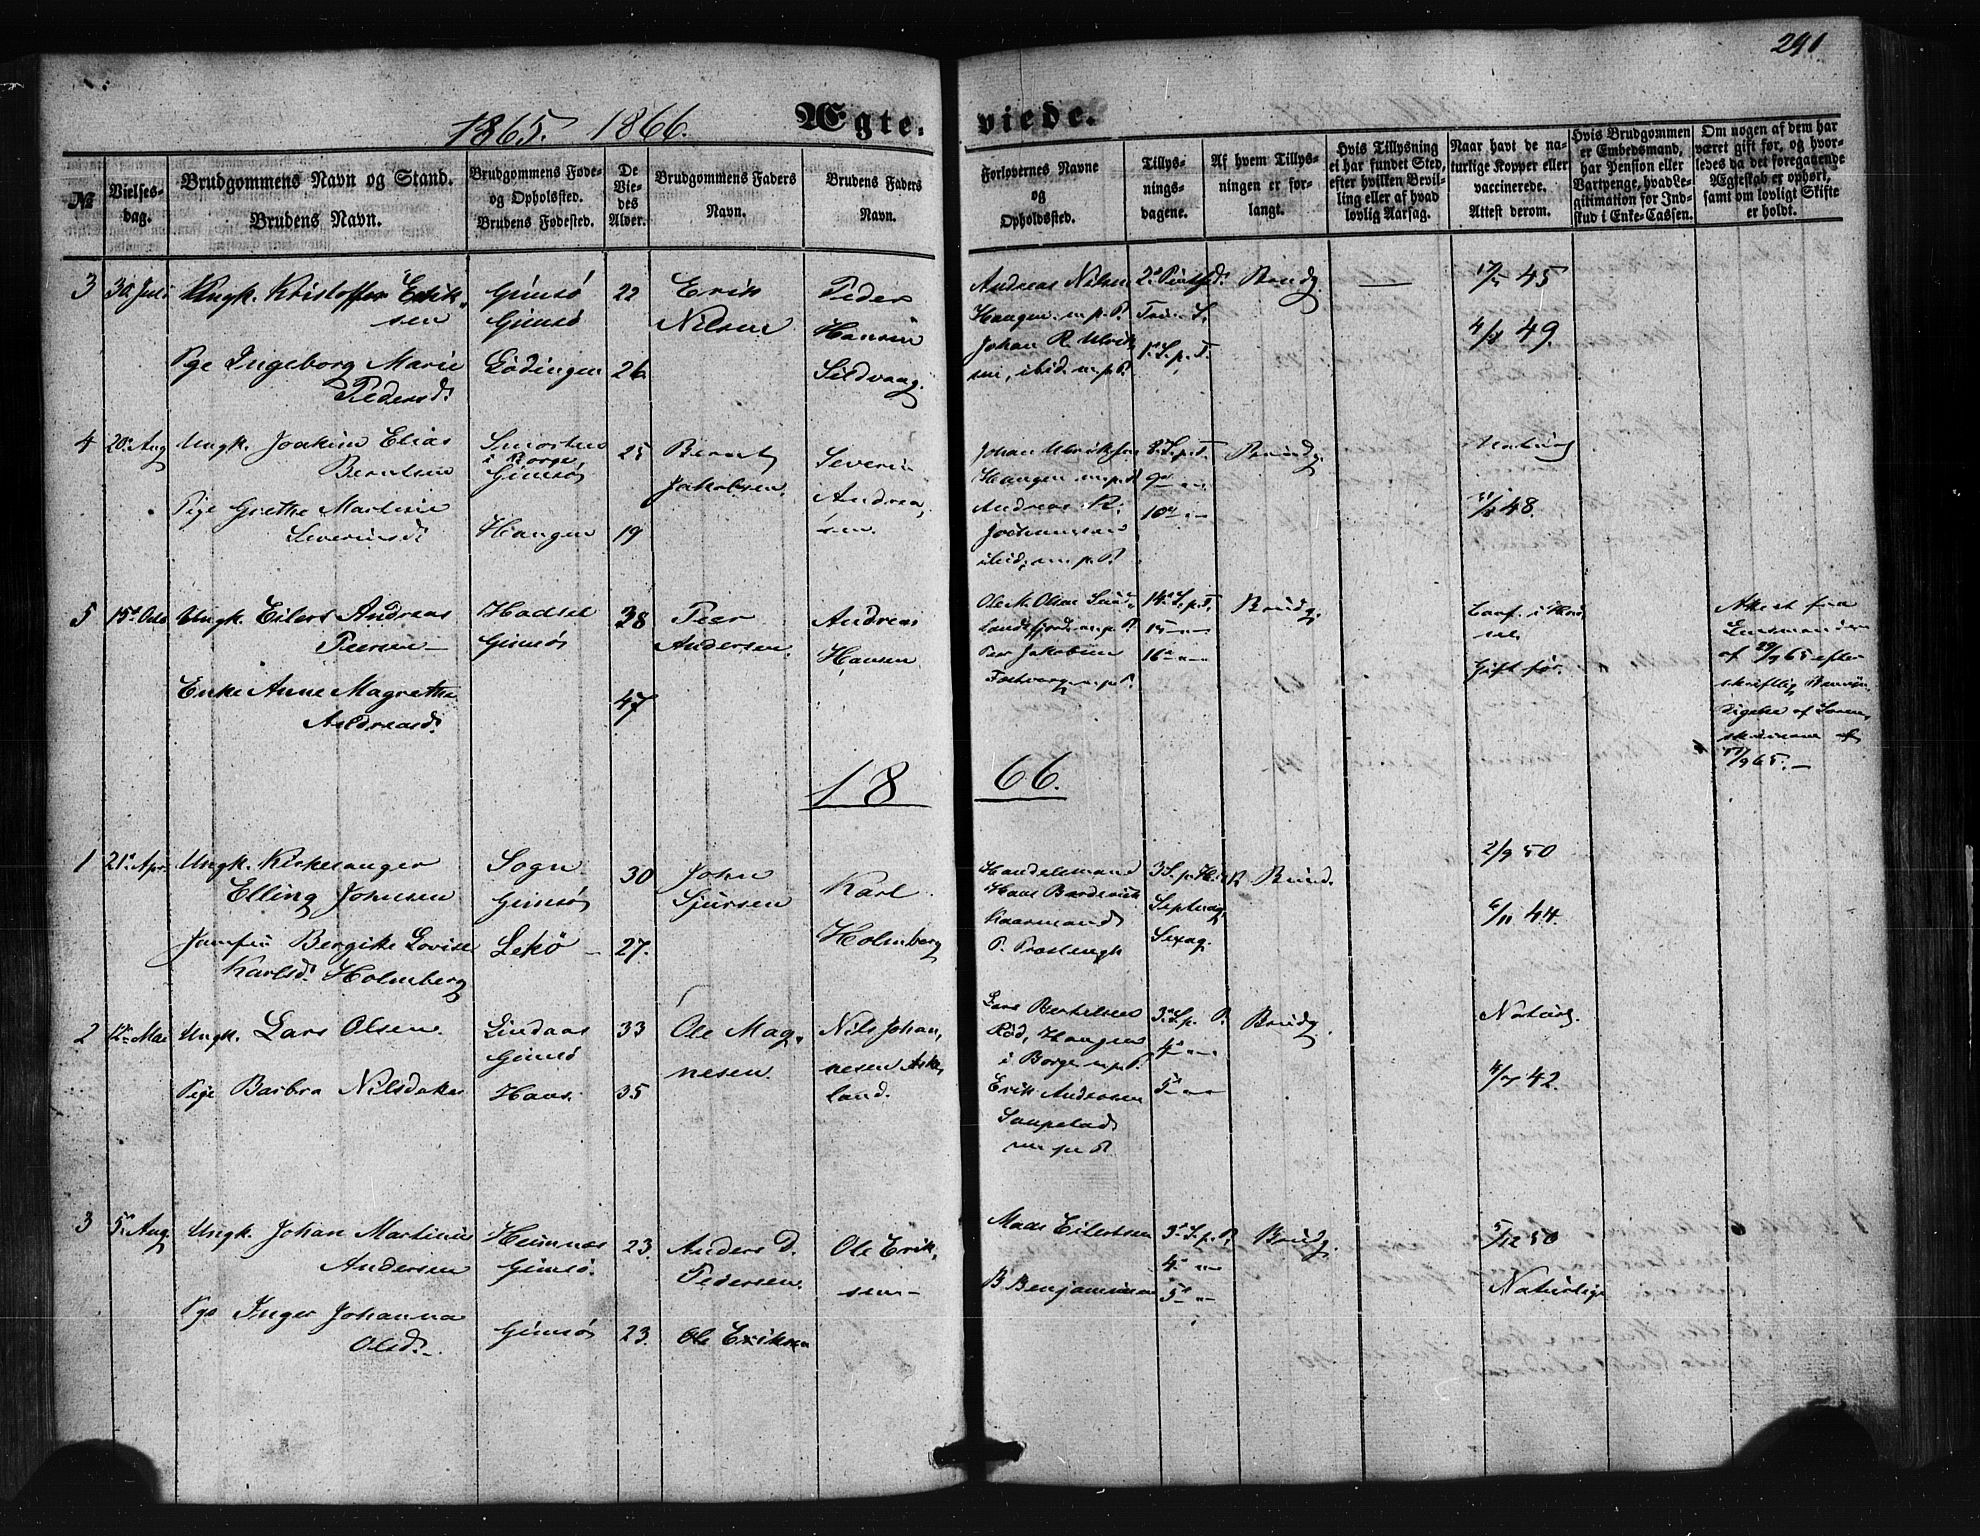 241
1865. 1866. Ægte-viede.
№
Vielses-
dag.
Brudgommens Navn og Stand.
Brudens Navn.
Brudgommens Føde-
og Opholdssted.
Brudens Fødested.
De
Vie-
des
Alder.
Brudgommens Faders
Navn.
Brudens Faders
Navn.
Forlovernes Navne
og
Opholdssted.
Tillys-
nings-
dagene.
Af hvem Tillys-
ningen er for-
langt.
Hvis Tillysning
ei har fundet Sted,
efter hvilken Bevil-
ling eller af hvad
lovlig Aarsag.
Naar havt de na-
turlige Kopper eller
vaccinerede.
Attest derom.
Hvis Brudgommen
er Embedsmand,
har Pension eller
Vartpenge, hvad Le-
gitimation for Ind-
skud i Enke-Cassen.
Om nogen af dem har
været gift før, og hvor-
ledes da det foregaaende
Ægteskab er ophørt,
samt om lovligt Skifte
er holdt.
3
30 Juli
Ungk. Kristoffer Erik-
sen
Pge Ingeborg Marie
Pedersd.
Gimsö
Gimsö
Lödingen
22
26
Erik
Nilsen
Peder
Hansen
Sildvaag.
Andreas Nilsen
Haugen m.p.P.
Johan R. Ulrik
sen, ibid. m.p.P.
Trin. S.
1. S. p. T.
Brudg.
45
49.
4
20 Aug
Ungk. Joakim Elias
Berntsen
Pige Grethe Martine
Severinsd.
Smorten
i Borge
Gimsö
Haugen
25
19
Bernt
Jakobsen.
Severin
Andrea,
sen.
Johan Ulriksen
Haugen m.p.P.
Andreas R.
ibid. m.p.P.
8. S. p. T.
9
10
Brudg.
48.
5
15 Octo
Ungk. Eilert Andreas
Peersen
Enke Anne Magrethe
Andreasd.
Hadsel
Gimsö
38
47
Peer
Andersen.
Andreas
Hansen
Ole M. Olsen
Peer Jakobsen
14. S. p. T.
15
16
Brudg.
Gift før.
Attest fra
Lensmanden
af 29/9 65 efter
skriftlig
af Soren
skriveren af
/9 65.
18 66.
1
21 Apr.
Ungk. Kirkesanger
Elling Johnsen
Jomfru Bergithe Lovise
Karlsd. Holmberg
Sogn
Gimsö
Lekö
30
27.
John
Sjursen
Karl
Holmberg
Handelsmand
Kaarmand
3 S. p. H. 3 K
Septuag.
Sexag.
Brud.
2/9 50
6/11 44
2
12 Mai
Ungk. Lars Olsen.
Pige Barbra Nilsdaker
Lindaas
Gimsö
Haus.
33
35
Ole Mag,
nesen.
Nils Johan,
nesen Aske,
land.
Lars Bertelsen
Röd, Haugen
i Borge m.p.P.
Erik Andersen
m.p.P.
3. S. p. P.
4
5
Brudg.
Naturl.
42.
3
5 Aug.
Ungk. Johan Martinus
Andersen
Pge Inger Johanna
Olsd.
Hemnæs
Gimsö.
Gimsö
23.
23.
Anders D.
Pedersen.
Ole Eriksen
Ole Erik,
sen
Mads Eilertsen
B Benjaminsen
3. S. p. P.
4
5
Brudg.
5/12 50
Naturlige